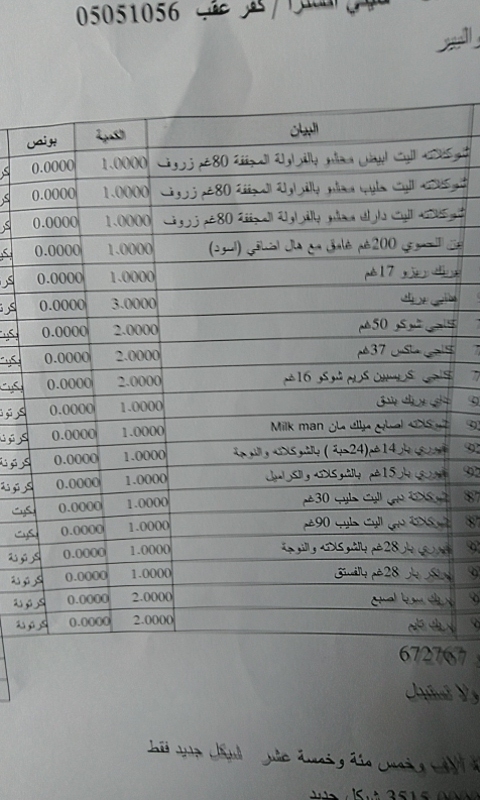 كفر عقب 05051056
البيان الكمية بونص
شوكلاته اليت ابيض محشو بالفراولة المجففة 80غم زروف 1.0000 0.0000
شوكلاته اليت حليب محشو بالفراولة المجففة 80غم زروف 1.0000 0.0000
شوكلاته اليت دارك محشو بالفراولة المجففة 80غم زروف 1.0000 0.0000
بن الحموي 200غم غامق مع هال اضافي (اسود) 1.0000 0.0000
بريك ريزو 17غم 1.0000 0.0000
بريك 3.0000 0.0000
كاجي شوكو 50غم 2.0000 0.0000
كاجي ماكس 37غم 2.0000 0.0000 بكيت
كاجي كريسبين كريم شوكو 16غم 2.0000 0.0000 بكيت
بريك بندق 1.0000 0.0000 كرتونة
شوكلاته اصابع ميلك مان Milk man 1.0000 0.0000 كرتونة
بار14غم(24حبة ) بالشوكلاته والنوجة 1.0000 0.0000 كرتونة
بار15غم بالشوكلاته والكراميل 1.0000 0.0000 كرتونة
شوكلاتة دبي اليت حليب 30غم 1.0000 0.0000 بكيت
شوكلاتة دبي اليت حليب 90غم 1.0000 0.0000 بكيت
بار28غم بالشوكلاته والنوجة 1.0000 0.0000 كرتونة
بار 28غم بالفستق 1.0000 0.0000 كرتونة
بريك سويا اصبع 2.0000 0.0000 كرتونة
بريك تايم 2.0000 0.0000 كرتونة
672767
ولا تستبدل
الاف وخمس مئة وخمسة عشر شيكل جديد فقط
3515 شيكل جديد